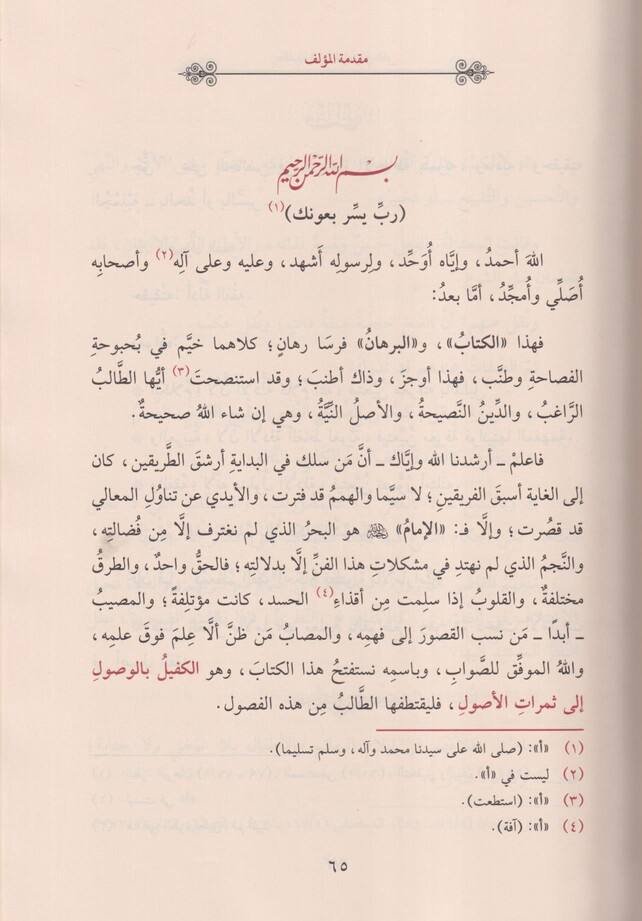 مقدمة المؤلف
بسم الله الرحمن الرحيم
(ربِّ يسِّر بعونك)(١)
اللهَ أحمدُ، وإيَّاه أُوَحِّد، ولِرسولِه أَشهد، وعليه وعلى آلِه(٢) وأصحابِه
أُصَلِّي وأُمجِّدُ، أمَّا بعدُ:
فهذا «الكتابُ»، و«البرهانُ» فرسَا رهانٍ؛ كلاهما خيَّم في بُحبوحةِ
الفصاحةِ وطنَّب، فهذا أوجزَ، وذاك أطنبَ؛ وقد استنصحتَ(٣) أيُّها الطَّالبُ
الرَّاغبُ، والدِّينُ النَّصيحةُ، والأصلُ النِّيَّةُ، وهي إن شاء اللهُ صحيحةٌ.
فاعلمْ ـ أرشدنا الله وإيَّاك ـ أنَّ مَن سلك في البدايةِ أرشقَ الطَّريقين، كان
إلى الغاية أسبقَ الفريقينِ؛ لا سيَّما والهممُ قد فترت، والأيدي عن تناوُلِ المعالي
قد قصُرت؛ وإلَّا فـ: «الإمامُ» ﵁ هو البحرُ الذي لم نغترف إلَّا مِن فُضالتِه،
والنَّجمُ الذي لم نهتدِ في مشكلاتِ هذا الفنِّ إلَّا بدلالتِه؛ فالحقُّ واحدٌ، والطرقُ
مختلفةٌ، والقلوبُ إذا سلِمت مِن أقذاءِ(٤) الحسد، كانت مؤتلِفةً؛ والمصيبُ
ـ أبدًا ـ مَن نسب القصورَ إلى فهمِه، والمصابُ مَن ظنَّ ألَّا عِلمَ فوقَ علمِه،
واللهُ الموفِّق للصَّوابِ، وباسمِه نستفتحُ هذا الكتابَ، وهو الكفيلُ بالوصولِ
إلى ثمراتِ الأصولِ، فليقتطفها الطَّالبُ مِن هذه الفصول.
(١) «أ»: (صلى الله على سيدنا محمد وآله، وسلم تسليما).
(٢) ليست في «أ».
(٣) «أ»: (استطعت).
(٤) «أ»: (آفة).
٦٥